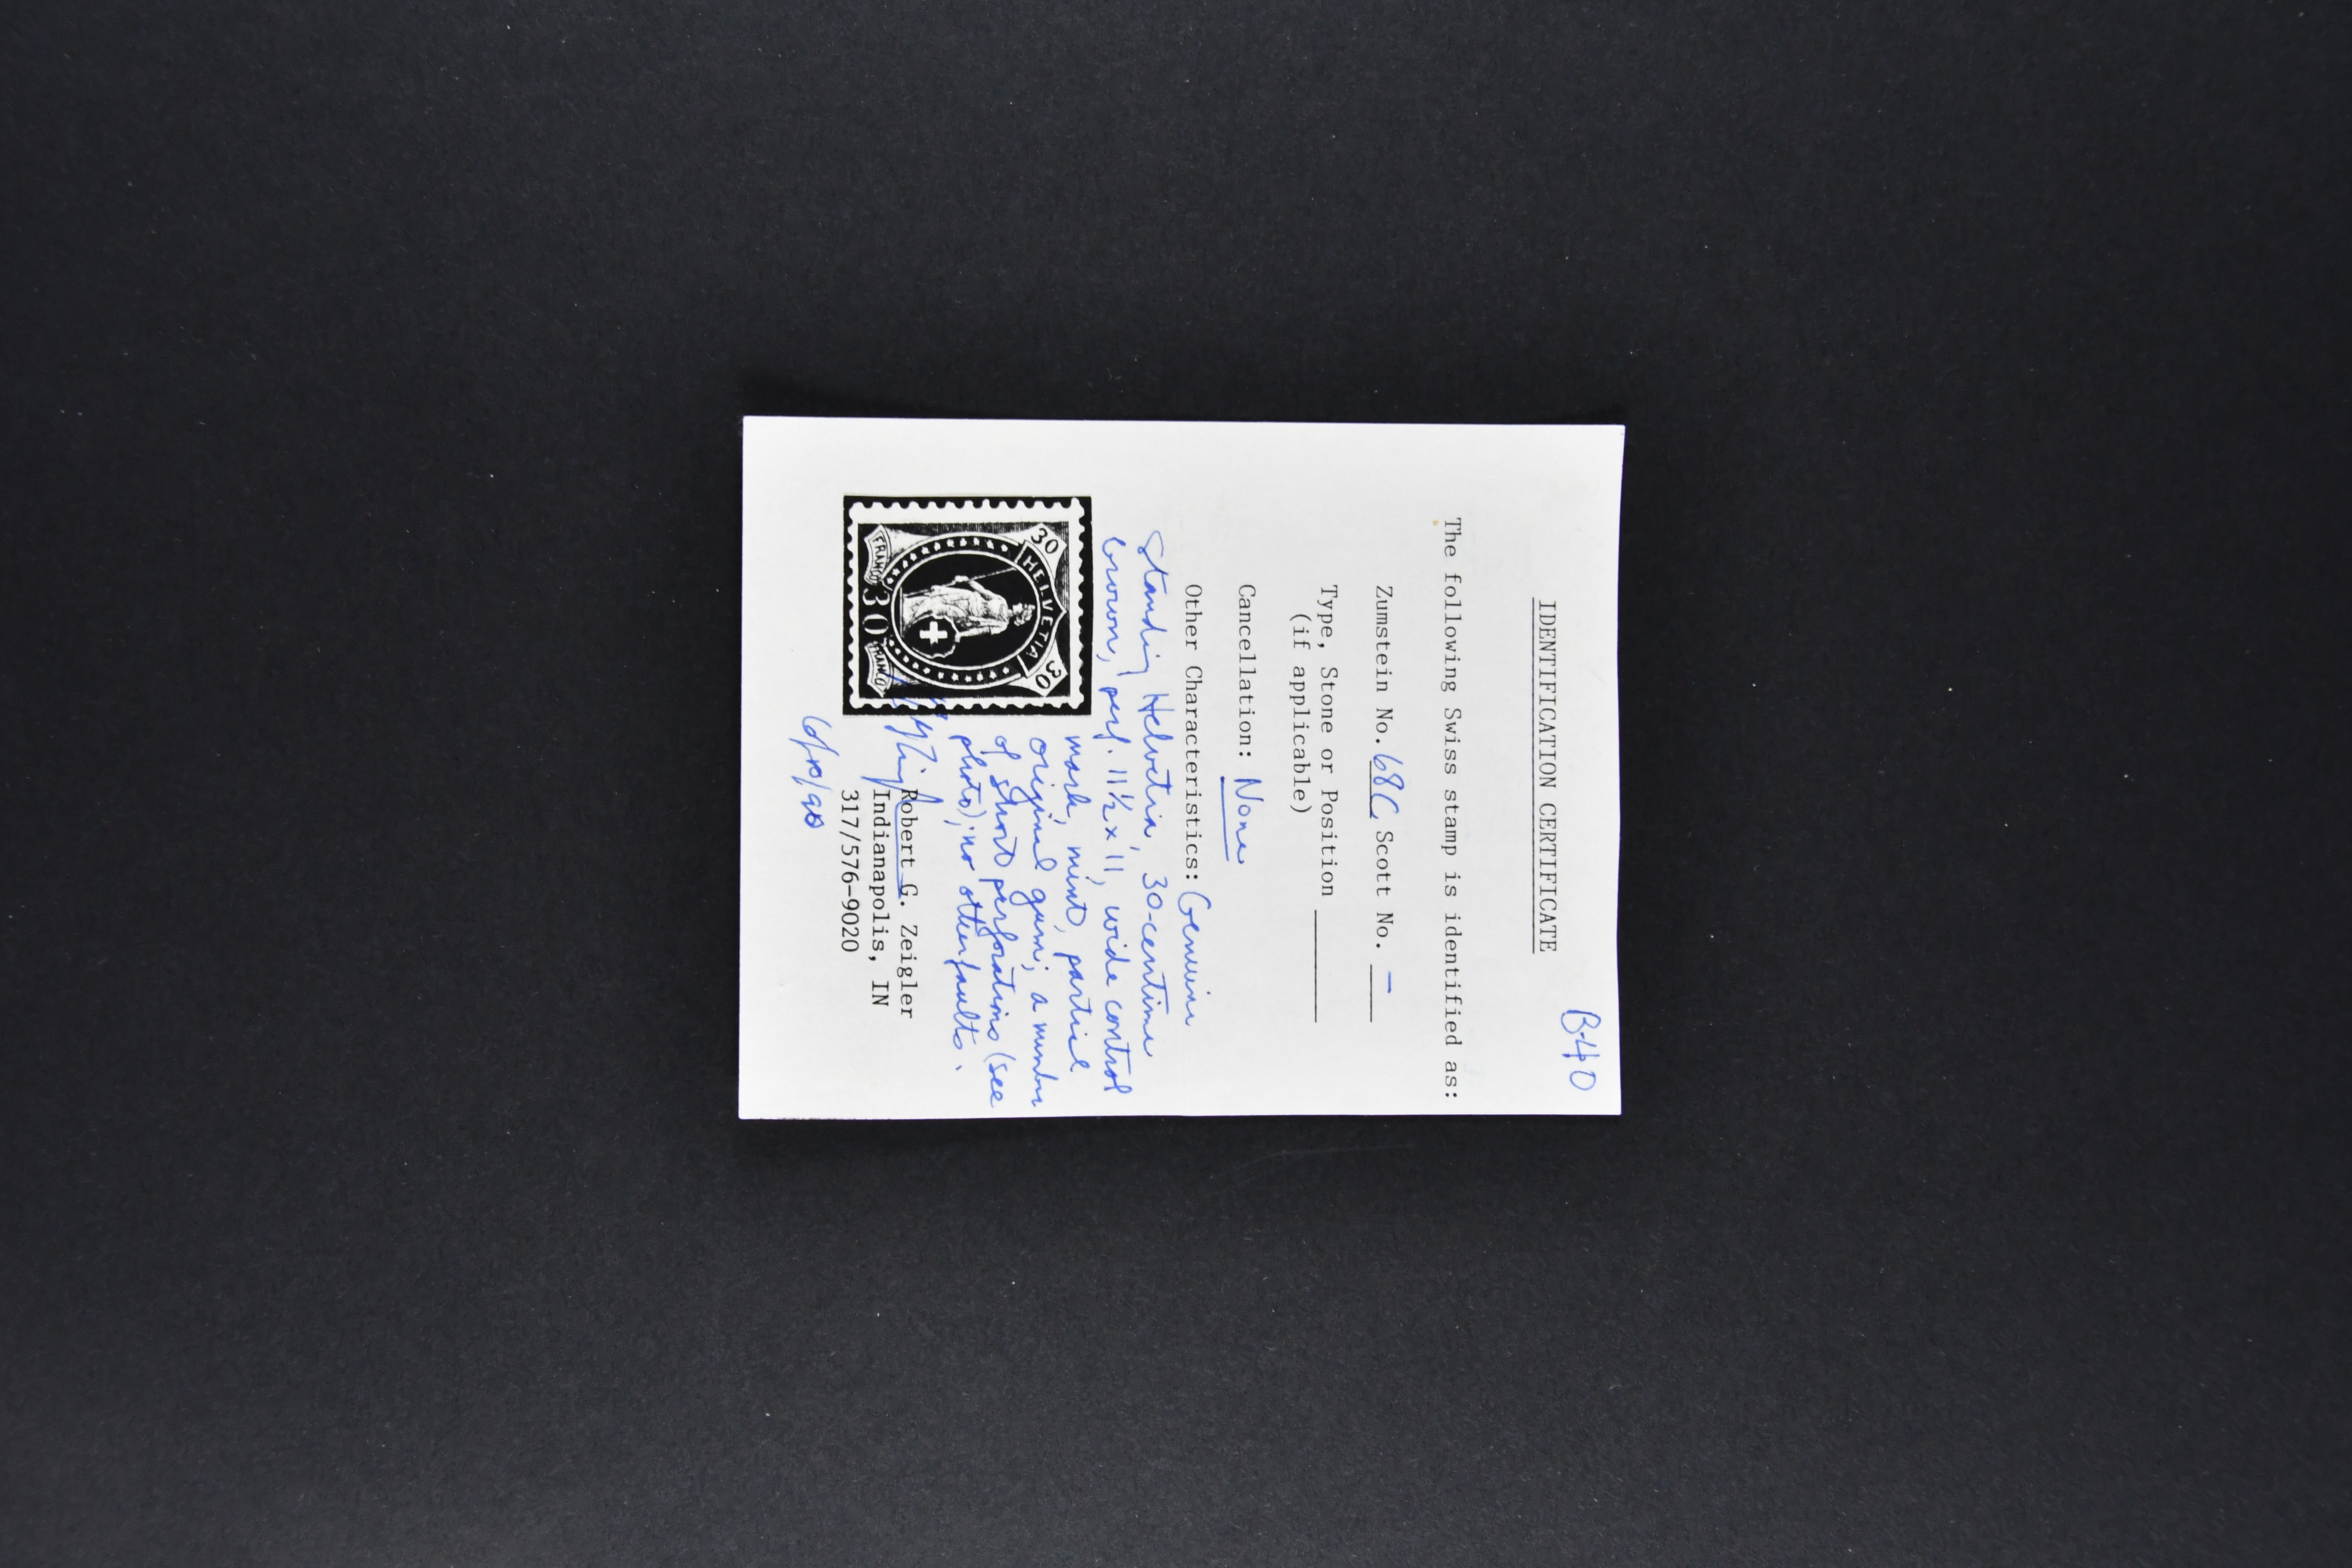 B-40
IDENTIFICATION CERTIFICATE
The following Swiss stamp is identified as:
Zumstein No. 68C Scott No. –
Type, Stone or Position
(if applicable)
Cancellation: None
Other Characteristics: Genuine
Standing Helvetia, 30-centime
brown, perf. 11½ x 11, wide control
mark, mint, partial
original gum; a number
of short perforations (see
photo); no other faults.
30 HELVETIA 30
FRANCO 30 FRANCO
Robert G. Zeigler
Indianapolis, IN
317/576-9020